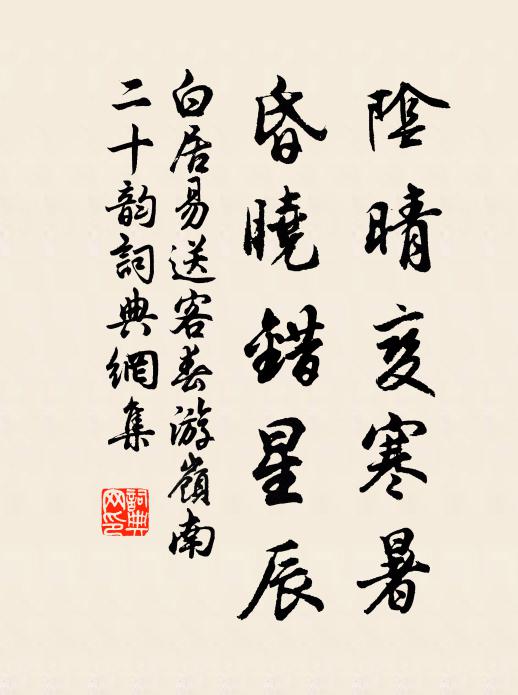 陰晴变寒暑
昏曉錯星辰
白居易送客春游嶺南
二十韵詞典網集
詞典网印